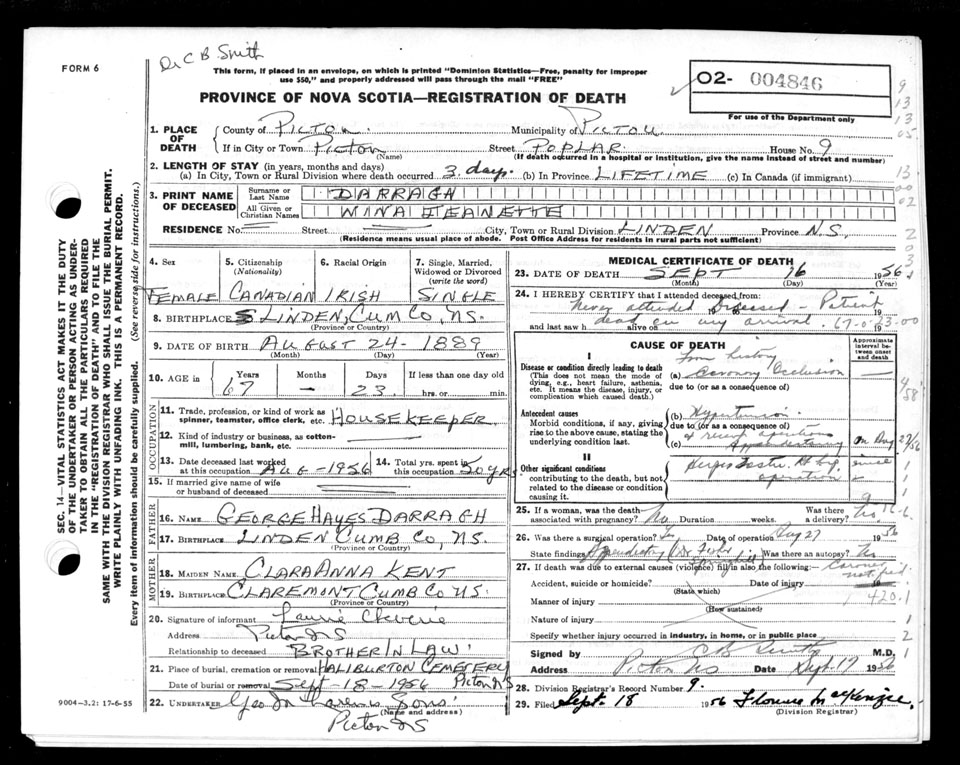 Dr C B Smith
FORM 6
This form, if placed in an envelope, on which is printed "Dominion Statistics—Free, penalty for improper
use $50," and properly addressed will pass through the mail "FREE"
02- 004846
PROVINCE OF NOVA SCOTIA—REGISTRATION OF DEATH
For use of the Department only
1. PLACE OF DEATH County of PICTOU. Municipality of PICTOU
If in City or Town Pictou (Name) Street POPLAR House No. 9
(If death occurred in a hospital or institution, give the name instead of street and number)
2. LENGTH OF STAY (in years, months and days)
(a) In City, Town or Rural Division where death occurred 3 days. (b) In Province LIFETIME (c) In Canada (if immigrant)
3. PRINT NAME OF DECEASED Surname or Last Name DARRAGH
All Given or Christian Names MINA JEANETTE
RESIDENCE No. Street City, Town or Rural Division LINDEN Province N.S.
(Residence means usual place of abode. Post Office Address for residents in rural parts not sufficient)
SEC. 14—VITAL STATISTICS ACT MAKES IT THE DUTY
OF THE UNDERTAKER OR PERSON ACTING AS UNDER-
TAKER TO OBTAIN ALL THE PARTICULARS REQUIRED
IN THE "REGISTRATION OF DEATH" AND TO FILE THE
SAME WITH THE DIVISION REGISTRAR WHO SHALL ISSUE THE BURIAL PERMIT.
WRITE PLAINLY WITH UNFADING INK. THIS IS A PERMANENT RECORD.
Every item of information should be carefully supplied. (See reverse side for instructions.)
4. Sex 5. Citizenship (Nationality) 6. Racial Origin 7. Single, Married, Widowed or Divorced (write the word)
FEMALE CANADIAN IRISH SINGLE
8. BIRTHPLACE LINDEN, CUM CO, N.S.
(Province or Country)
9. DATE OF BIRTH AUGUST 24- 1889
(Month) (Day) (Year)
10. AGE in Years Months Days If less than one day old
67 — 23 hrs. or min.
OCCUPATION
11. Trade, profession, or kind of work as spinner, teamster, office clerk, etc. HOUSEKEEPER.
12. Kind of industry or business, as cotton-mill, lumbering, bank, etc.
13. Date deceased last worked at this occupation AUG-1956 14. Total yrs. spent in 50 yrs.
15. If married give name of wife or husband of deceased
FATHER
16. NAME GEORGE HAYES DARRAGH
17. BIRTHPLACE LINDEN CUMB CO, N.S.
(Province or Country)
MOTHER
18. MAIDEN NAME CLARA ANNA KENT
19. BIRTHPLACE CLAREMONT CUMB CO N.S.
(Province or Country)
20. Signature of informant
Address Pictou NS
Relationship to deceased BROTHER IN LAW
21. Place of burial, cremation or removal HALIBURTON CEMETERY
Date of burial or removal Sept-18-1956 Pictou NS
22. UNDERTAKER Geo Sons
(Name and address)
Pictou NS
9004-3.2: 17-6-55
MEDICAL CERTIFICATE OF DEATH
23. DATE OF DEATH SEPT 16 1956
(Month) (Day) (Year)
24. I HEREBY CERTIFY that I attended deceased from:
Never attended Deceased - Patient
and last saw h alive on dead on my arrival. 67-0-23-00
CAUSE OF DEATH
Approximate interval between onset and death
I
Disease or condition directly leading to death
(This does not mean the mode of dying, e.g., heart failure, asthenia, etc. It means the disease, injury, or complication which caused death.)
From history
(a) Coronary Occlusion
due to (or as a consequence of)
Antecedent causes
Morbid conditions, if any, giving rise to above cause, stating the underlying condition last.
(b) Hypertension
due to (or as a consequence of)
& recent operations
(c) Appendectomy on Aug 27/56
II
Other significant conditions
contributing to the death, but not related to the disease or condition causing it.
Herpes Zoster Rt hip since
operation
25. If a woman, was the death associated with pregnancy? No Duration weeks. Was there a delivery? No
26. Was there a surgical operation? Yes Date of operation Aug 27 1956
State findings Appendectomy Was there an autopsy? No
27. If death was due to external causes (violence) fill in also the following:— Coroner notified.
Accident, suicide or homicide? (State which) Date of injury 19
Manner of injury (How sustained) 420.1
Nature of injury
Specify whether injury occurred in industry, in home, or in public place
Signed by C B Smith M.D.
Address Pictou NS Date Sept. 17 1956
28. Division Registrar's Record Number 9.
29. Filed Sept. 18 1956 Florence MacKenzie,
(Division Registrar)